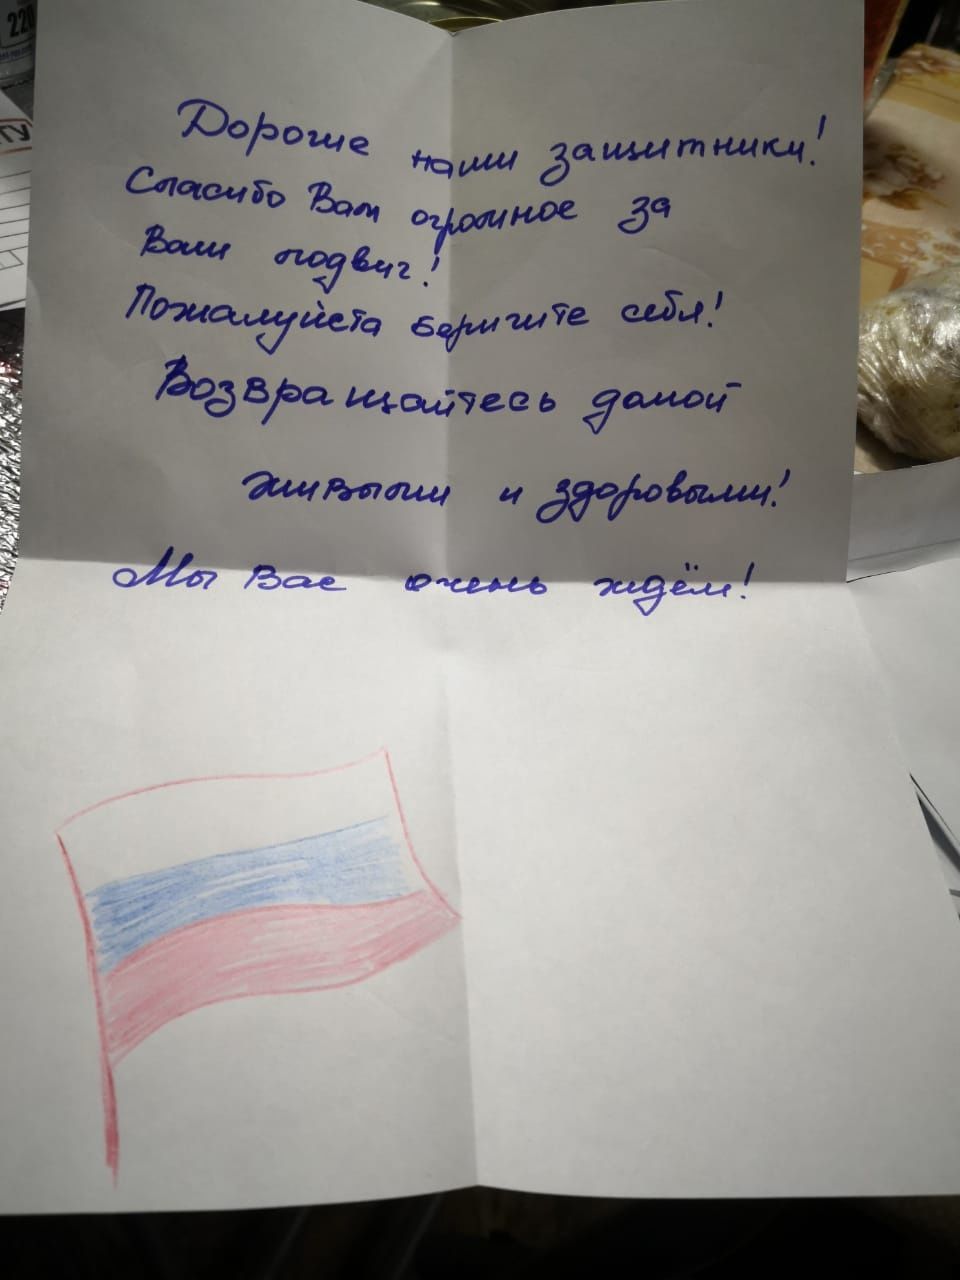 Дорогие наши защитники!
Спасибо Вам огромное за
Ваш подвиг!
Пожалуйста беригите себя!
Возвращайтесь домой
живыми и здоровыми!
Мы Вас очень ждём!
220